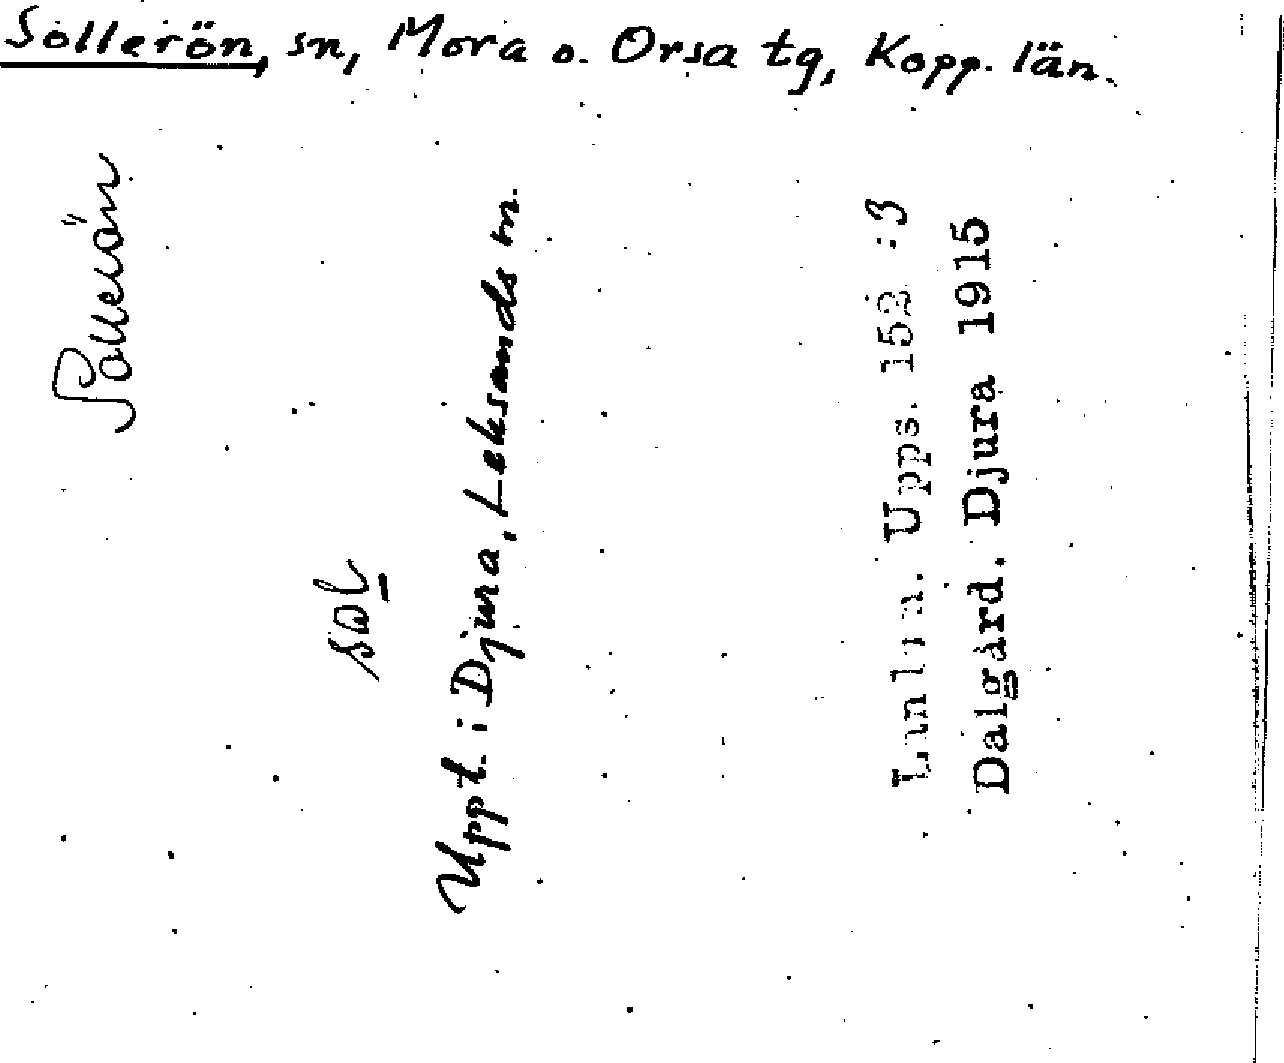 Sollerön, sn, Mora o. Orsa tg, Kopp. län.
Sollerön
Uppt. i Djura, Leksands sn.
Landsm. Upps. 152 :3
Dalgård. Djura 1915